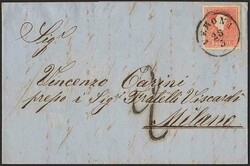 Sig.r
VERONA
26
3
Vincenzo Carini
prepo i Sig.i Fratelli Viscardi
Milano